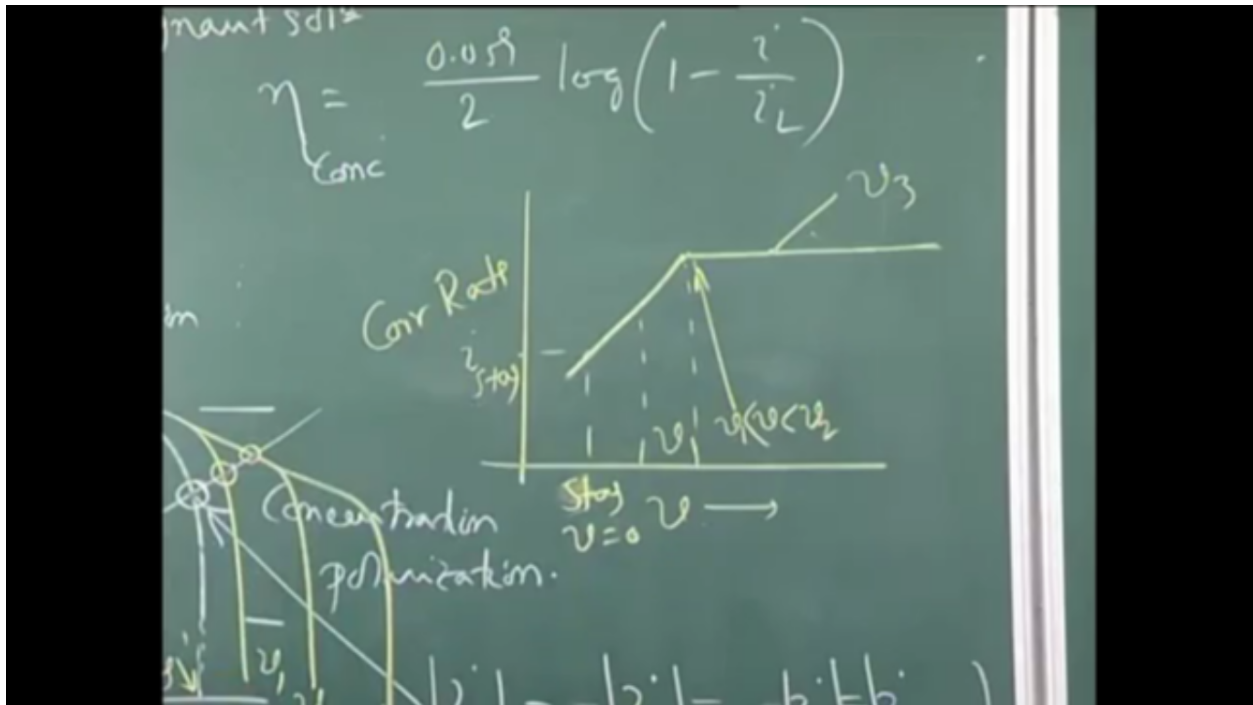 η_conc = 0.059/2 log(1 - i/i_L)
v3
Corr Rate
i stag
v1 v1<v<v2
stag
v=0 v →
Concentration
polarization.
v1